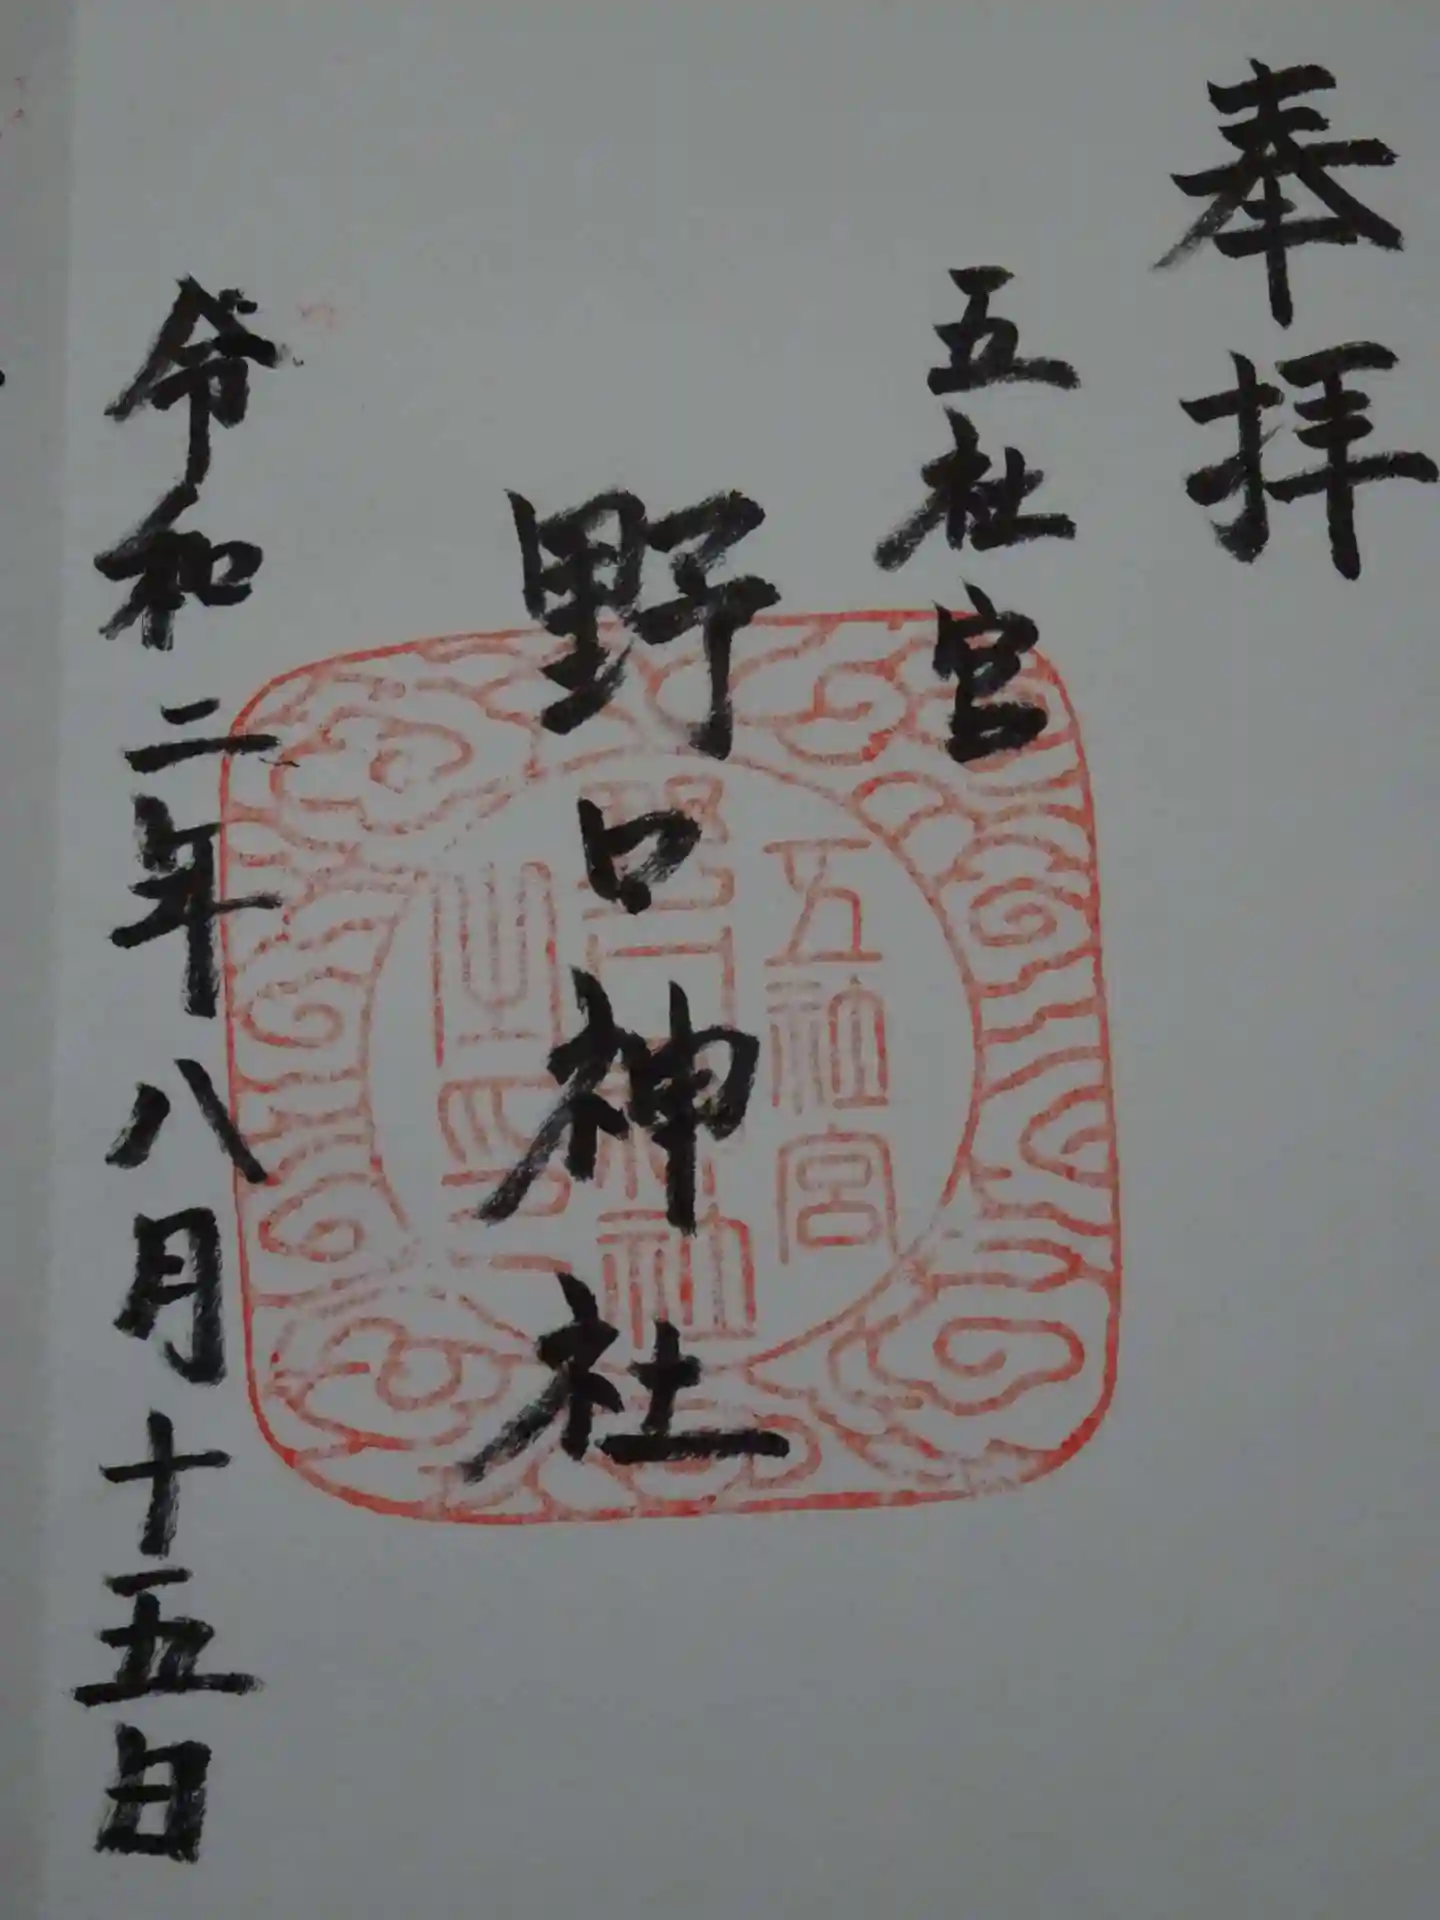 奉拝
五社宮
野口神社
令和二年八月十五日
五社宮
野口神社
之印